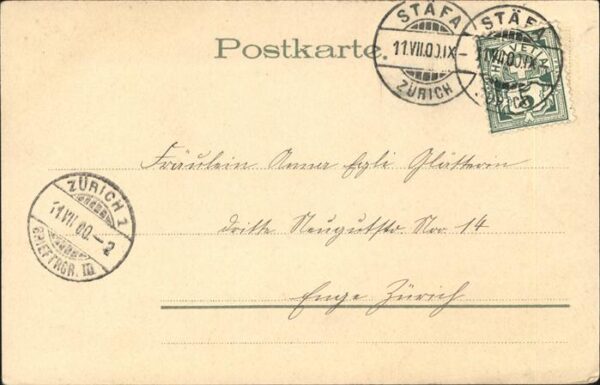 Postkarte.
STÄFA
11.VII.00.IX-
ZÜRICH
STÄFA
11.VII.00.IX-
HELVETIA
5
Fräulein Anna Egli Glätterin
dritte Neugutstr Nro 14
Enge Zürich
ZÜRICH 1
11.VII.00.-2
BRIEFTRGR. III